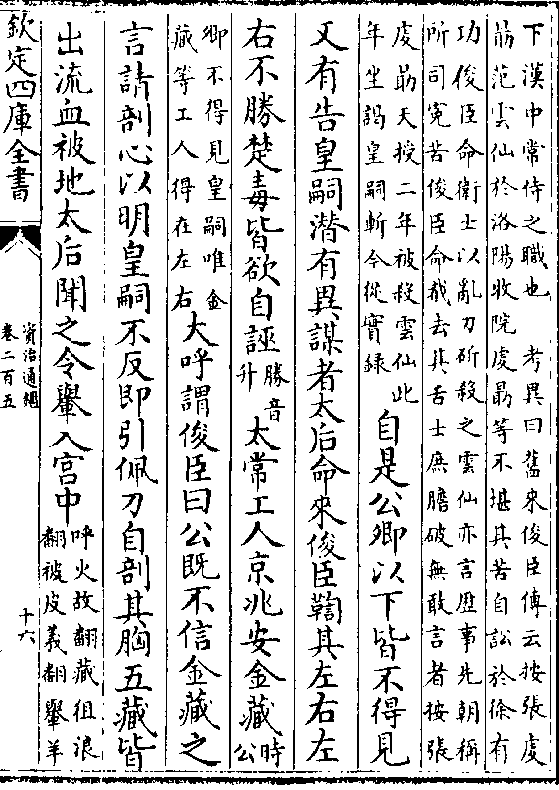 下漢中常侍之職也　考異曰舊來俊臣傳云按張虔
勗范雲仙於洛陽牧院虔勗等不堪其苦自訟於徐有
功俊臣命衛士以亂刀斫殺之雲仙亦言歷事先朝稱
所司寃苦俊臣命截去其舌士庶膽破無敢言者按張
虔勗天授二年被殺雲仙此
年坐謁皇嗣斬今從實録
自是公卿以下皆不得見
又有告皇嗣潛有異謀者太后命來俊臣鞫其左右左
右不勝楚毒皆欲自誣
勝音
升
太常工人京兆安金藏
時
公
卿不得見皇嗣唯金
藏等工人得在左右
大呼謂俊臣曰公既不信金藏之
言請剖心以明皇嗣不反即引佩刀自剖其胸五藏皆
出流血被地太后聞之令轝入宫中
呼火故翻藏徂浪
翻被皮義翻轝羊
欽定四庫全書
資治通鑑
卷二百五
十六